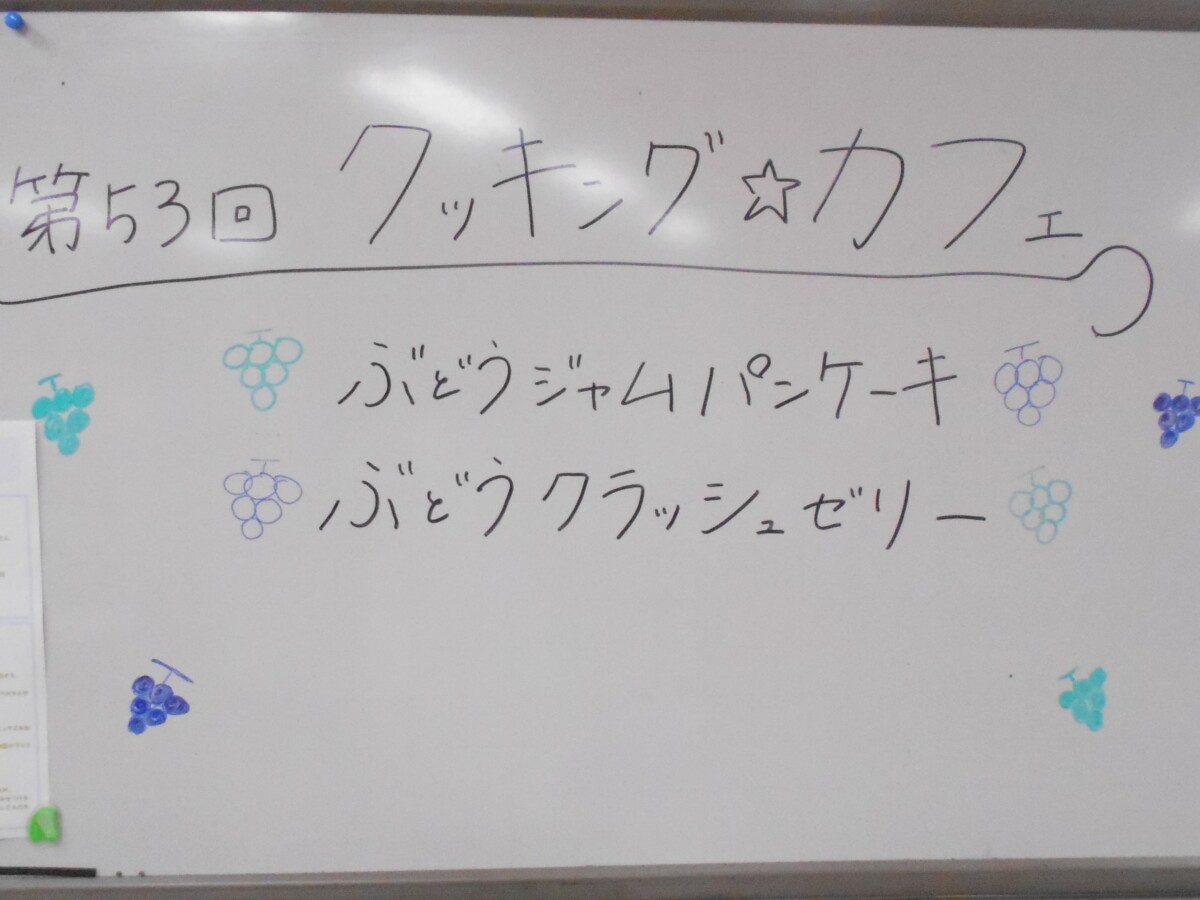 第53回 クッキング☆カフェ
ぶどうジャムパンケーキ
ぶどうクラッシュゼリー